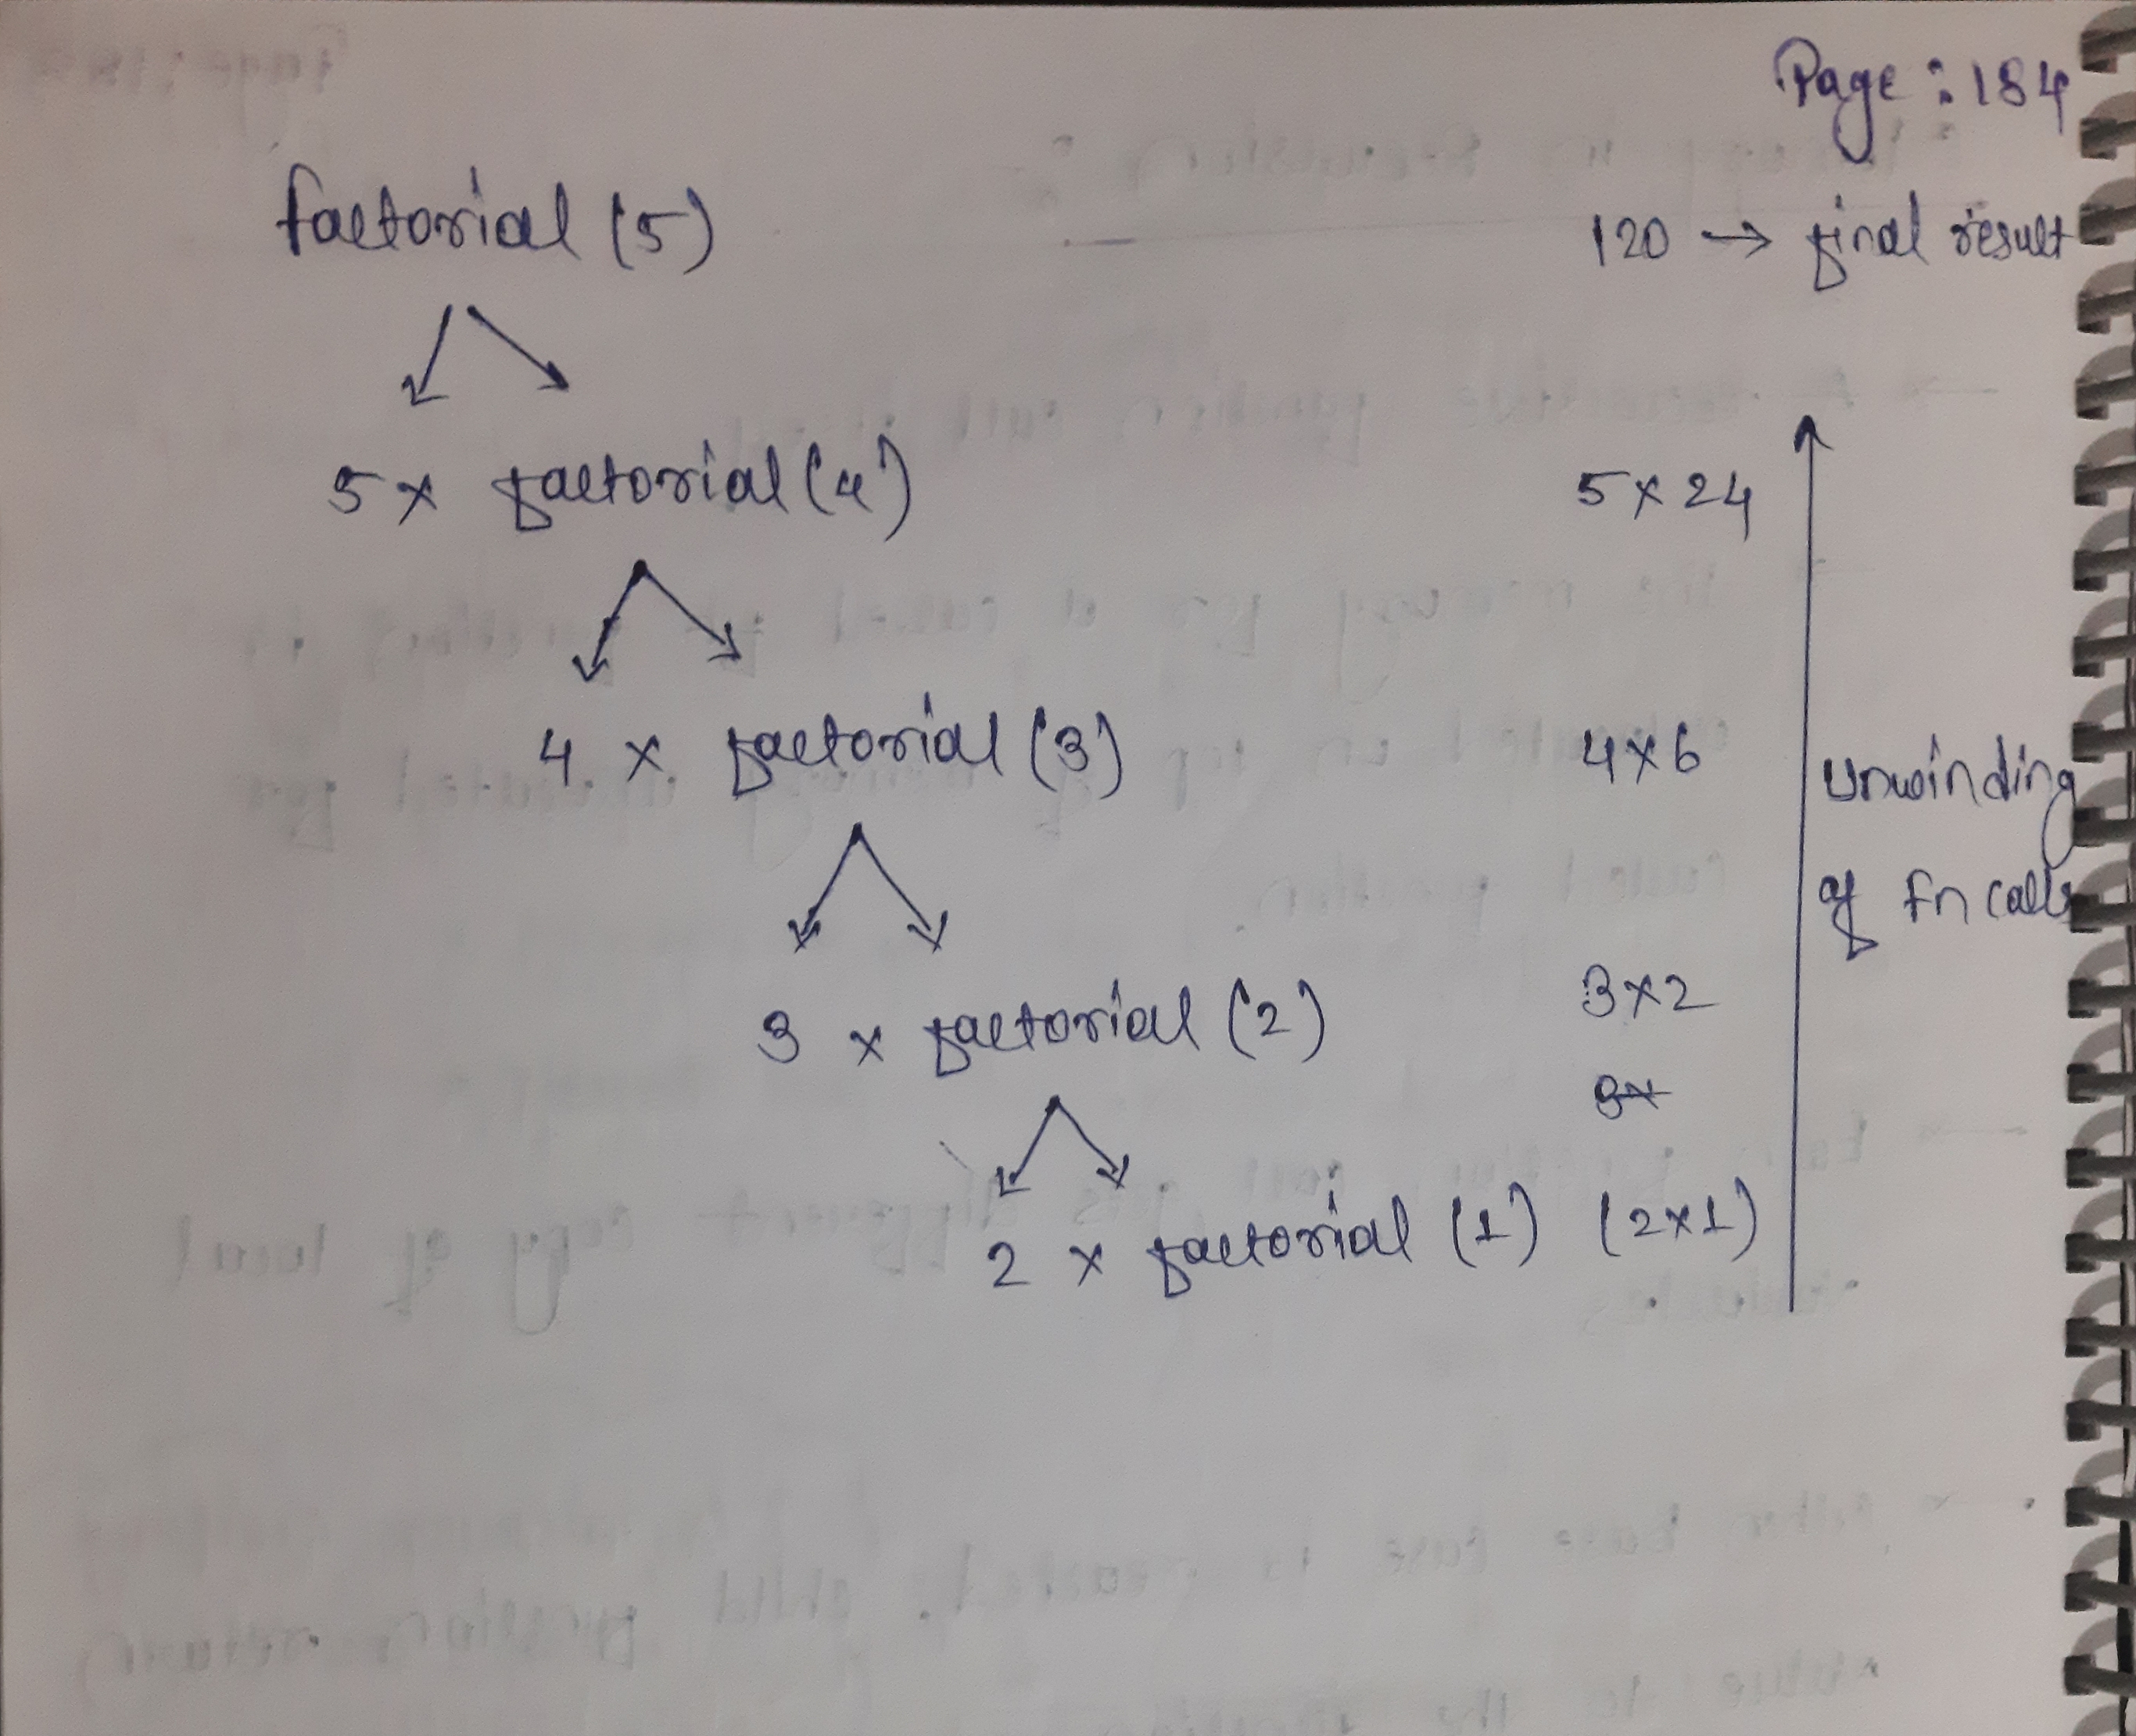 Page : 184
factorial (5) 120 → final result
5 x factorial (4) 5 x 24
4 x factorial (3) 4 x 6 unwinding
of fn calls
3 x factorial (2) 3 x 2
3x
2 x factorial (1) (2 x 1)